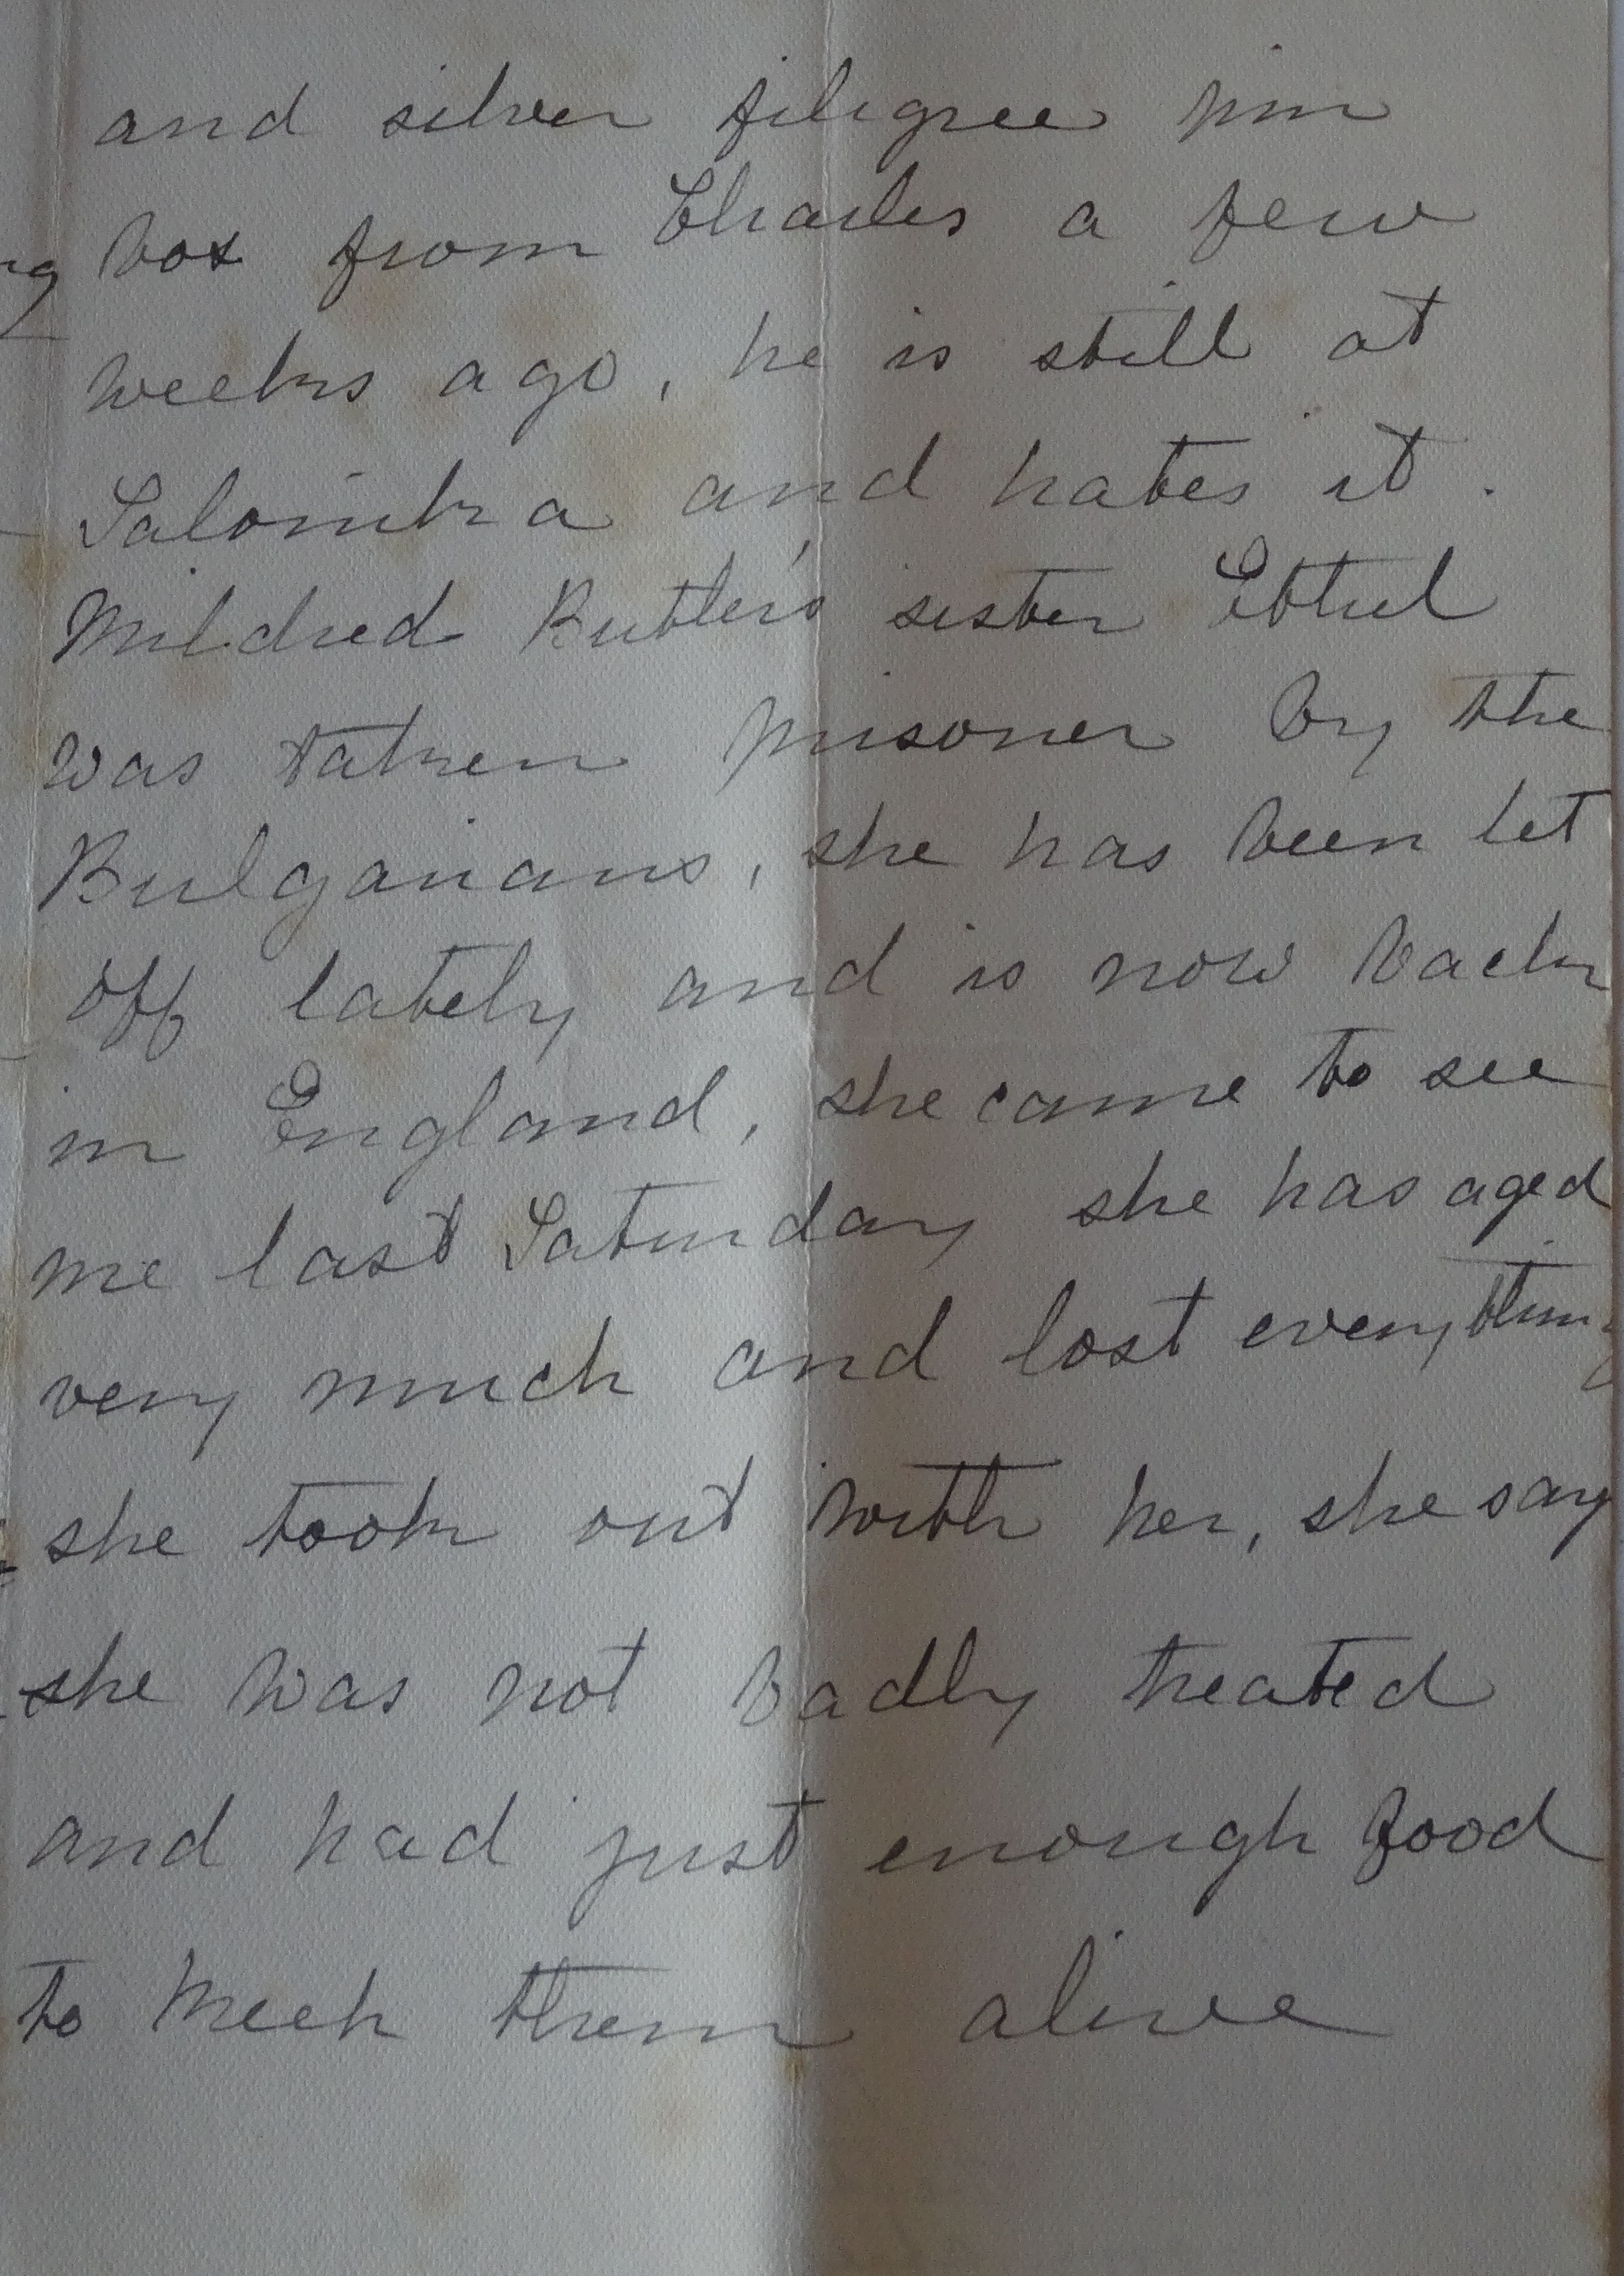 and silver filigree pin
box from Charles a few
weeks ago, he is still at
Salonika and hates it.
Mildred Butler's sister Ethel
was taken prisoner by the
Bulgarians, she has been let
off lately and is now back
in England, she came to see
me last Saturday she has aged
very much and lost everything
she took out with her, she say
she was not badly treated
and had just enough food
to keep them alive